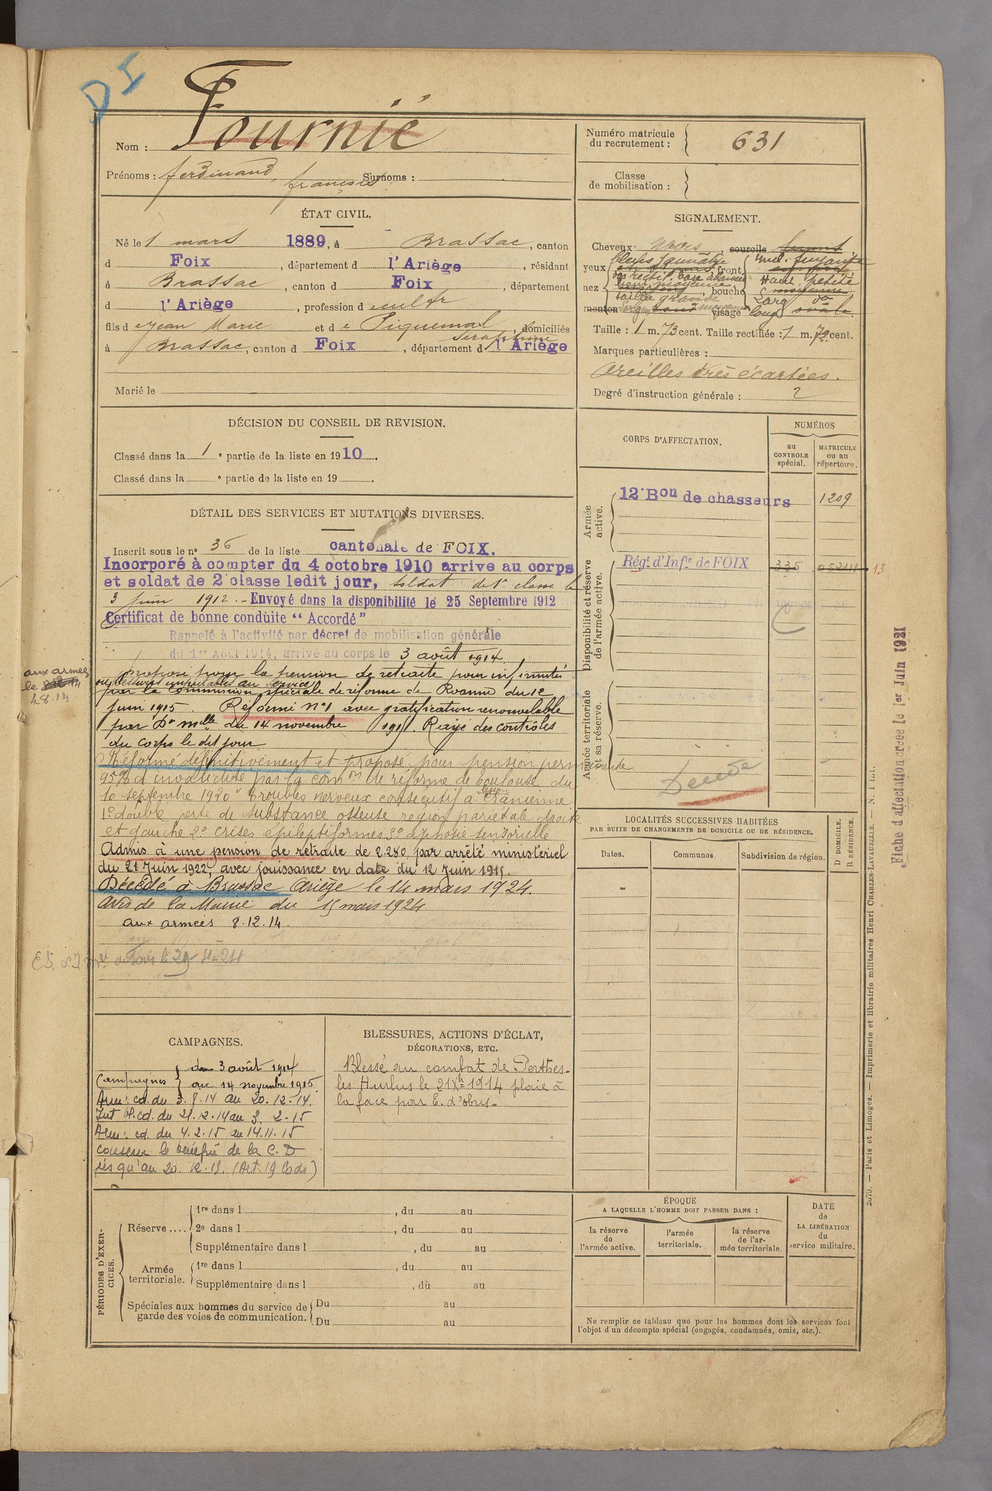 DI
Nom : Fournié
Prénoms : Ferdinand, françois Surnoms :
Numéro matricule du recrutement : 631
Classe de mobilisation :
ÉTAT CIVIL.
Né le 1 mars 1889, à Brassac, canton
d Foix, département d l'Ariège, résidant
à Brassac, canton d Foix, département
d l'Ariège, profession d cultr
fils d e Jean Marie et d e Piquemal Séraphine, domiciliés
à Brassac, canton d Foix, département d l'Ariège
Marié le
SIGNALEMENT.
Cheveux noirs, sourcils
yeux front
nez bouche
menton visage
Taille : 1 m. 73 cent. Taille rectifiée : 1 m. 73 cent.
Marques particulières :
Oreilles très écartées.
Degré d'instruction générale : 2
DÉCISION DU CONSEIL DE REVISION.
Classé dans la 1e partie de la liste en 1910.
Classé dans la e partie de la liste en 19
CORPS D'AFFECTATION.
NUMÉROS
au CONTROLE spécial.
MATRICULE ou au répertoire.
Armée active.
12e Bon de chasseurs 1209
Disponibilité et réserve de l'armée active.
Rég. d'Infie de FOIX 335 13
Armée territoriale et sa réserve.
Décédé
DÉTAIL DES SERVICES ET MUTATIONS DIVERSES.
Inscrit sous le n° 36 de la liste cantonale de FOIX.
Incorporé à compter du 4 octobre 1910 arrive au corps
et soldat de 2e classe ledit jour, soldat de 1e classe le
3 juin 1912. - Envoyé dans la disponibilité le 25 Septembre 1912
Certificat de bonne conduite "Accordé"
Rappelé à l'activité par décret de mobilisation générale
du 1er Août 1914, arrivé au corps le 3 août 1914.
aux armées
le
4.8.14
proposé pour la pension de retraite pour infirmités
ou blessures incurables au service
par la commission spéciale de réforme de Roanne du 12
juin 1915. Réformé n°1 avec gratification renouvelable
par Don melle du 14 novembre 1915. Rayé des contrôles
du corps le dit jour
Réformé définitivement et proposé pour pension permanente
95% d'invalidité par la comon de réforme de Toulouse du
10 septembre 1920 "troubles nerveux consécutif à
1° double perte de substance osseuse région pariétale droite
et gauche 2° crises épileptiformes 3° aphasie sensorielle
Admis à une pension de retraite de 2.280, par arrêté ministériel
du 21 Juin 1922, avec jouissance en date du 12 Juin 1915.
Décédé à Brassac Ariège le 14 mars 1924.
Avis de la Mairie du 15 mars 1924
aux armées 8.12.14.
Foix le 29-4-24
LOCALITÉS SUCCESSIVES HABITÉES
PAR SUITE DE CHANGEMENTS DE DOMICILE OU DE RÉSIDENCE.
Dates.
Communes.
Subdivision de région.
D DOMICILE.
R RÉSIDENCE.
CAMPAGNES.
Campagnes du 3 août 1914
au 14 novembre 1915
Arm: cd. du 3.8.14 au 20.12.14.
Int. cd. du 21.12.14 au 3.2.15
Arm: cd. du 4.2.15 au 14.11.15
conserve le bénéfice de la C.D
jusqu'au 20.12.15. (Art. 19
BLESSURES, ACTIONS D'ÉCLAT,
DÉCORATIONS, ETC.
Blessé au combat de Perthes-
les Hurlus le 21 Xbre 1914 plaie à
la face par E. d'obus.
PÉRIODES D'EXERCICES.
Réserve....
1re dans l , du au
2e dans l , du au
Supplémentaire dans l , du au
Armée territoriale.
1re dans l , du au
Supplémentaire dans l , du au
Spéciales aux hommes du service de garde des voies de communication.
Du au
Du au
ÉPOQUE
A LAQUELLE L'HOMME DOIT PASSER DANS :
la réserve de l'armée active.
l'armée territoriale.
la réserve de l'armée territoriale.
DATE de LA LIBÉRATION du service militaire.
Ne remplir ce tableau que pour les hommes dont les services font
l'objet d'un décompte spécial (engagés, condamnés, omis, etc.).
Paris et Limoges. — Imprimerie et librairie militaires Henri CHARLES-LAVAUZELLE.
Fiche d'affectation créée le 1er Juin 1921